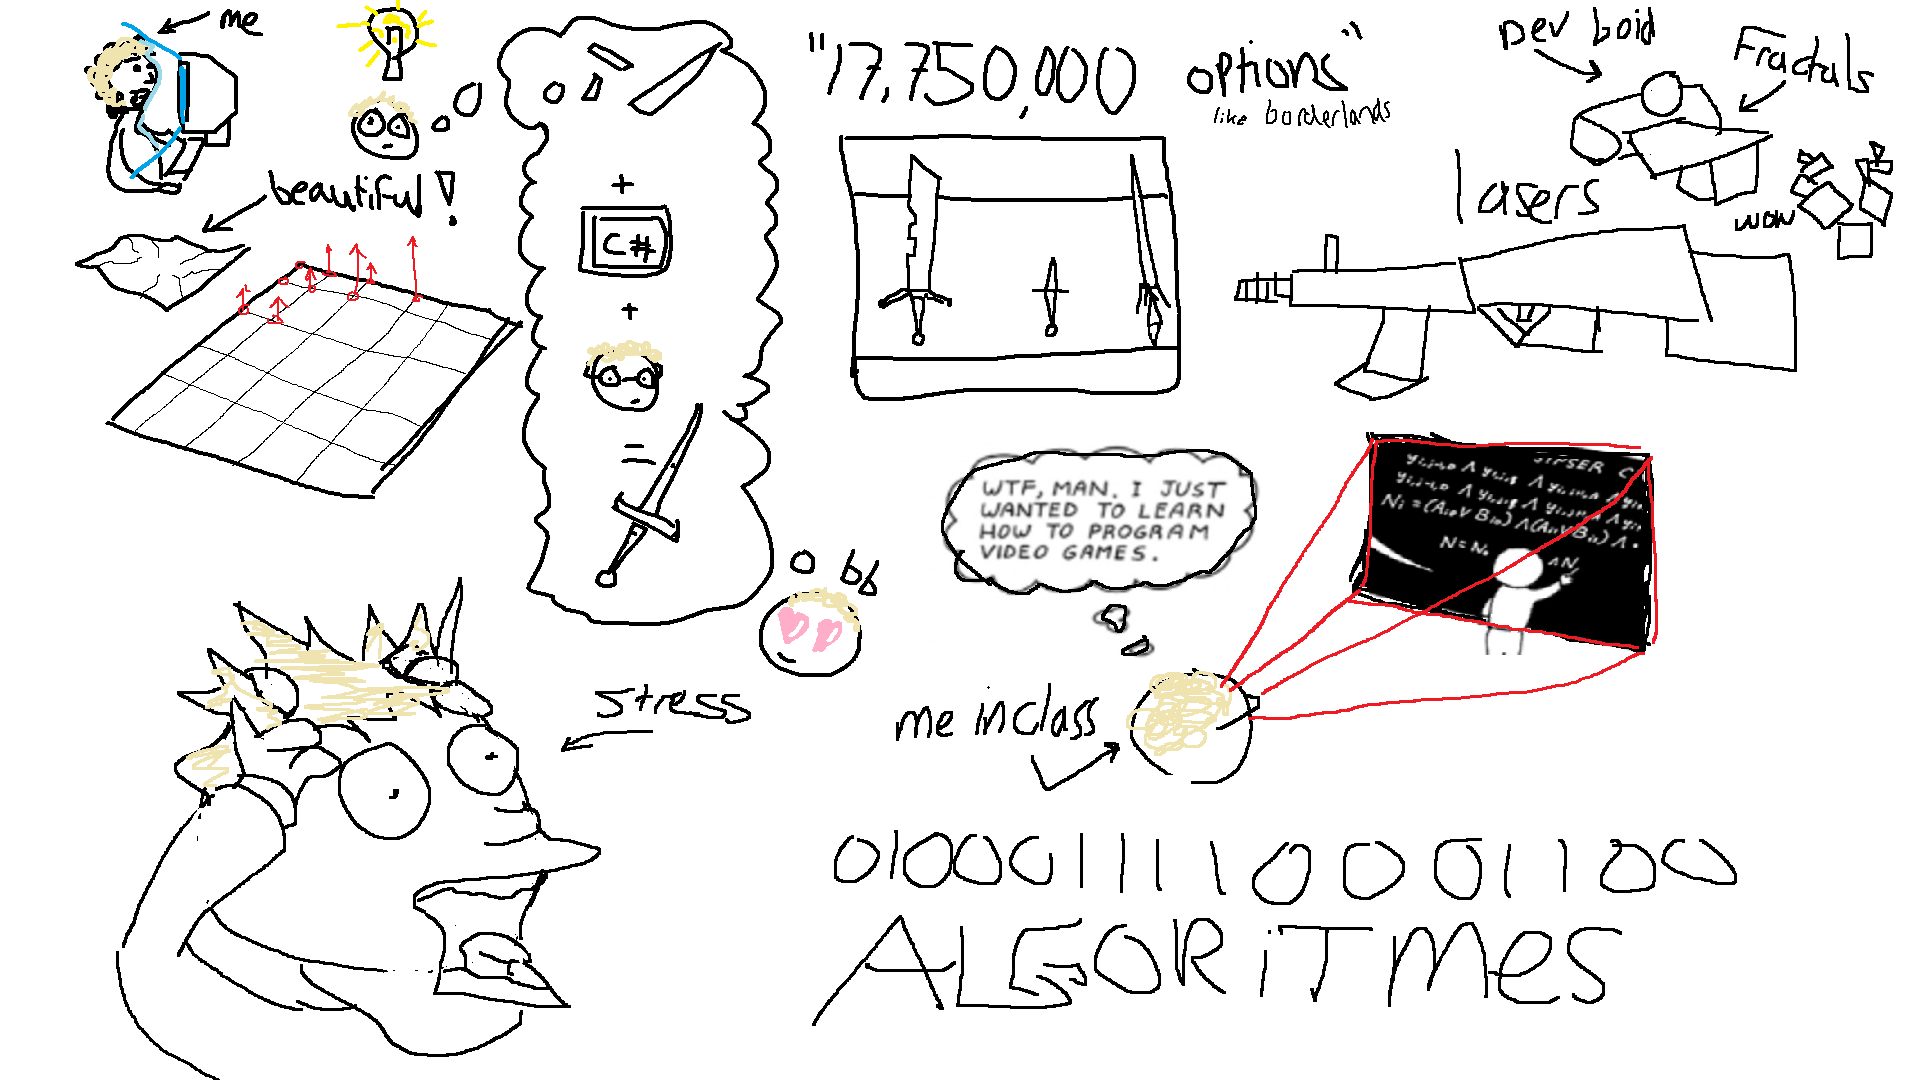 me
beautiful!
C#
"17,750,000 options"
like borderlands
Dev boid
Fractals
lasers
wow
WTF, MAN. I JUST
WANTED TO LEARN
HOW TO PROGRAM
VIDEO GAMES.
stress
me in class
0100011110001100
ALGORiTMes